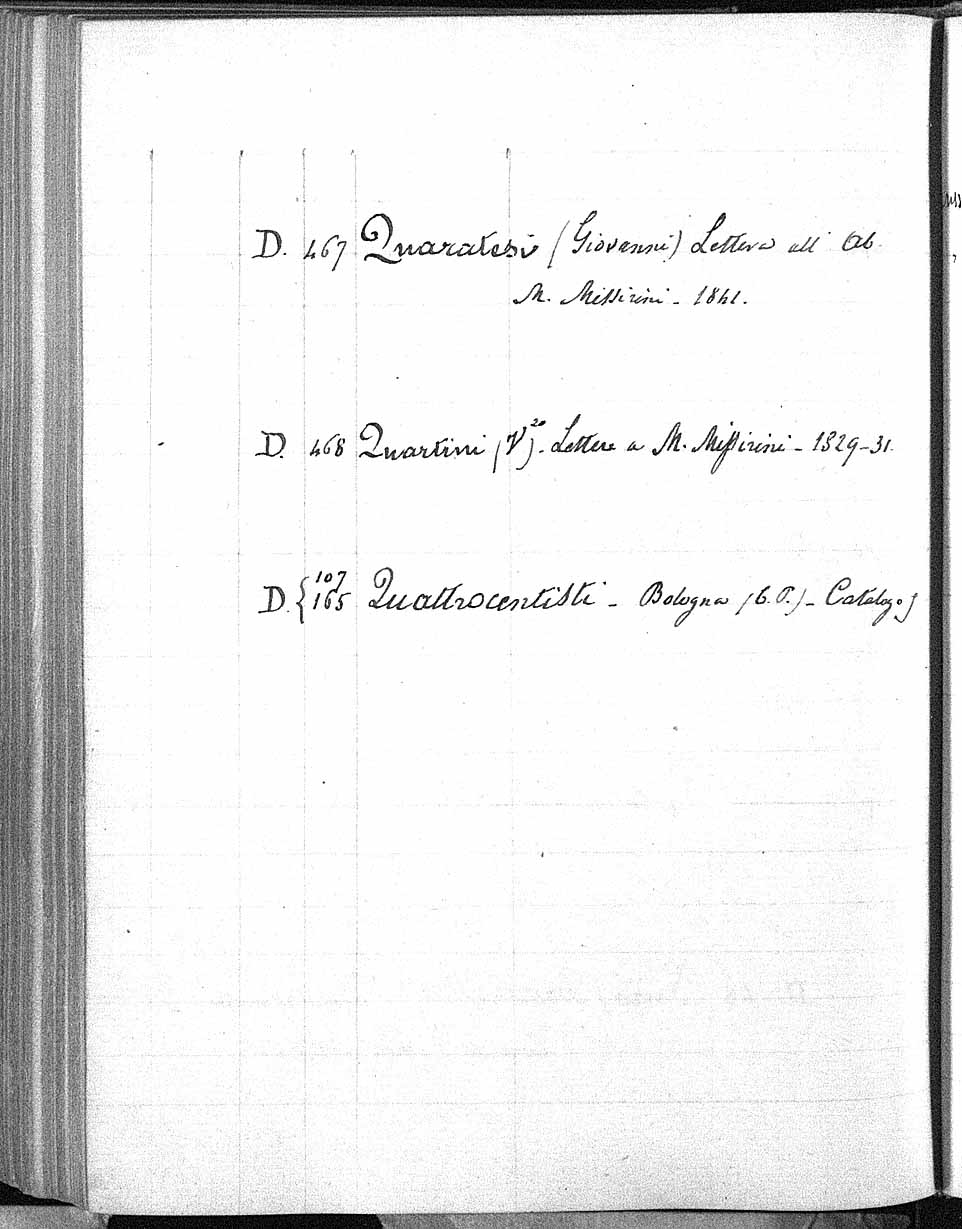 D. 467 Quaratesi (Giovanni) Lettera all' Ab.
M. Missirini - 1841.
D. 468 Quartini (V). Lettere a M. Missirini - 1829-31.
D. { 107
165 Quattrocentisti - Bologna ( ) - Catalogo